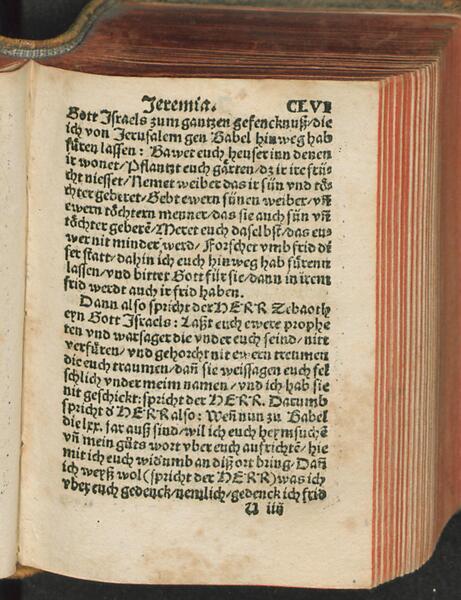 Jeremia. CLVI
Gott Israels zum gantzen gefencknuß/die
ich von Jerusalem gen Babel hinweg hab
füren lassen: Bawet euch heuser inn denen
ir wonet/Pflantzt euch gärten/dz ir ire früͤ-
cht niesset/Nemet weiber das ir sün vnd töͤ-
chter geberet/Gebt ewern sünen weiber/vñ
ewern töchtern menner/das sie auch sün vñ
töchter geberẽ/Meret euch daselbst/das eu-
wer nit minder werd/Forschet vmb frid di
ser statt/dahin ich euch hinweg hab fürenn
lassen/vnd bittet Gott für sie/dann in irem
frid werdt auch ir frid haben.
Dann also spricht der HERR Zebaoth
eyn Gott Israels: Laßt euch ewere prophe
ten vnd warsager die vnder euch seind/nitt
verfüren/vnd gehorcht nit ewern treumen
die euch traumen/dañ sie weissagen euch fel
schlich vnder meim namen/vnd ich hab sie
nit geschickt: spricht der HERR. Darumb
spricht d̕ HERR also: Weñ nun zu Babel
die lxx. jar auß sind/wil ich euch heymsuchẽ
vñ mein güts wort vber euch auffrichtẽ/hie
mit ich euch wid̕umb an diß ort bring/Dañ
ich weyß wol (spricht der HERR) was ich
vber euch gedenck/nemlich/gedenck ich frid
U iiij